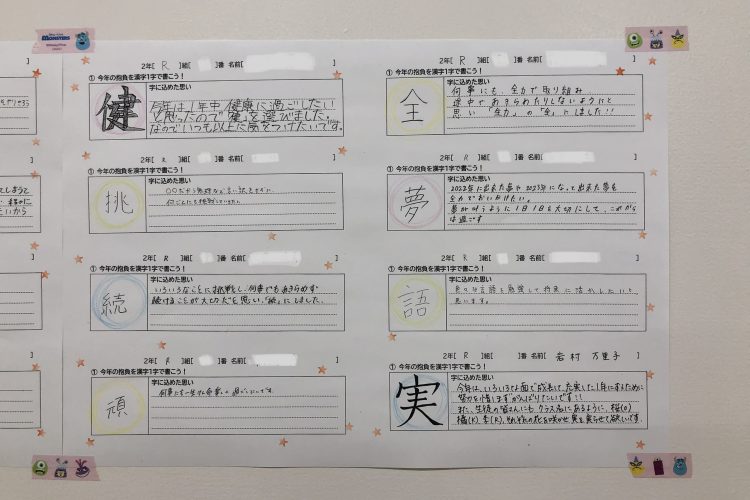 2年[ R ]組[ ]番 名前[ ]
① 今年の抱負を漢字1字で書こう!
健
字に込めた思い
今年は1年中健康に過ごしたい
と思ったので「健」を選びました。
なのでいつも以上に気をつけたいです。
2年[ R ]組[ ]番 名前[ ]
① 今年の抱負を漢字1字で書こう!
挑
字に込めた思い
2年[ R ]組[ ]番 名前[ ]
① 今年の抱負を漢字1字で書こう!
続
字に込めた思い
いろいろなことに挑戦をし、何事でもあきらめず
続けることが大切だと思い、「続」にしました。
2年[ R ]組[ ]番 名前[ ]
① 今年の抱負を漢字1字で書こう!
頑
字に込めた思い
2年[ R ]組[ ]番 名前[ ]
① 今年の抱負を漢字1字で書こう!
全
字に込めた思い
何事にも、全力で取り組み、
途中であきらめたりしないようにと
思い「全力」の「全」にしました!!
2年[ R ]組[ ]番 名前[ ]
① 今年の抱負を漢字1字で書こう!
夢
字に込めた思い
2022年に出来た夢や2023年になって出来た夢を
全力でおいかけたい。
夢が叶うように1日1日を大切にして、これから
は過ごす
2年[ R ]組[ ]番 名前[ ]
① 今年の抱負を漢字1字で書こう!
語
字に込めた思い
色々な言語を勉強して将来に活かしたいと
思います。
2年[ R ]組[ ]番 名前[ 岩村 万里子 ]
① 今年の抱負を漢字1字で書こう!
実
字に込めた思い
今年は、いろいろな面で成長して、充実した1年にするために
努力を惜しまずがんばりたいです!!
また、生徒の皆さんにも クラス名にあるように、桜(O)
橘(K) 李(R)、それぞれの花を咲かせ実を実らせて欲しいです。